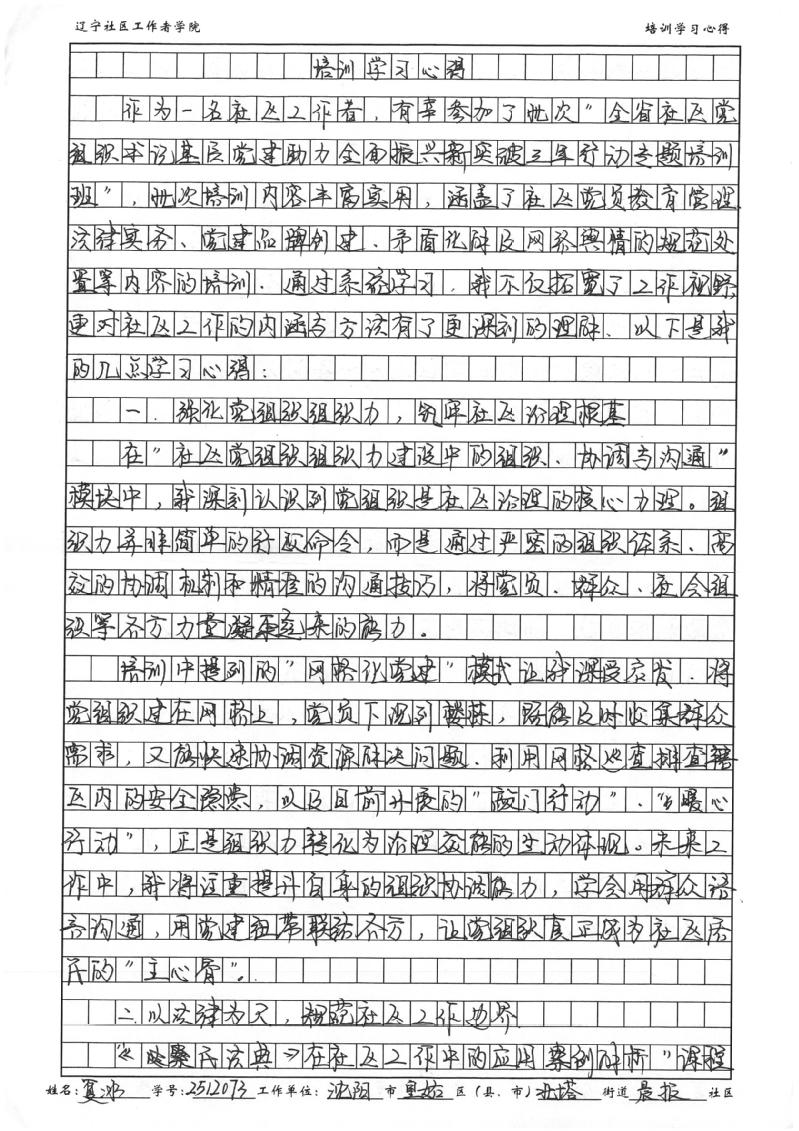 辽宁社区工作者学院 培训学习心得
培训学习心得
作为一名社区工作者，有幸参加了此次"全省社区党
组织书记基层党建助力全面振兴新突破三年行动专题培训
班"，此次培训内容丰富实用，涵盖了社区党员教育管理
法律实务、党建品牌创建、矛盾化解及网络舆情的规范处
置等内容的培训．通过系统学习．我不仅拓宽了工作视野，
更对社区工作的内涵与方法有了更深刻的理解．以下是我
的几点学习心得：
一．强化党组织组织力，筑牢社区治理根基
在"社区党组织组织力建设中的组织、协调与沟通"
模块中，我深刻认识到党组织是社区治理的核心力理。组
织力并非简单的行政命令，而是通过严密的组织体系、高
效的协调机制和精准的沟通技巧，将党员、群众、社会组
织等各方力量凝聚起来的能力。
培训中提到的"网格化党建"模式让我深受启发．将
党组织建在网格上，党员下沉到楼栋，既能及时收集群众
需求，又能快速协调资源解决问题．利用网格也查排查辖
区内的安全隐患，以及目前开展的"敲门行动"．"暖心
行动"，正是组织力转化为治理效能的生动体现。未来工
作中，我将注重提升自身的组织协调能力，学会用群众语
言沟通，用党建纽带联结各方，让党组织真正成为社区居
民的"主心骨"。
二．以法律为尺，规范社区工作边界
《民法典》在社区工作中的应用案例解析"课程
姓名：夏冰 学号：2512073 工作单位：沈阳 市 皇姑 区（县、市） 北塔 街道 晨报 社区